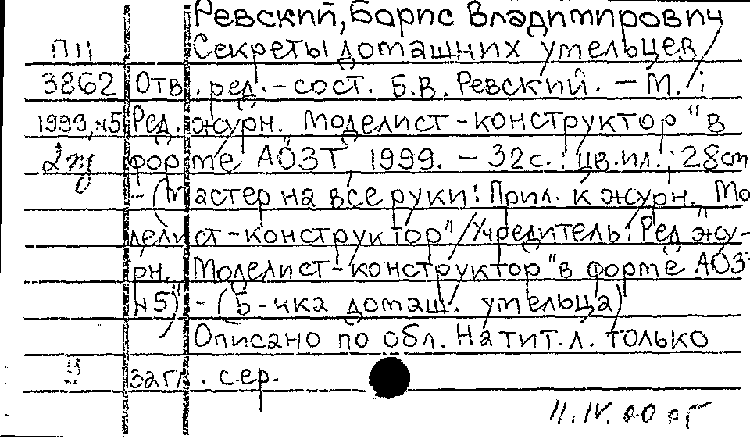 Ревский, Борис Владимирович
ПII Секреты домашних умельцев /
3862 Отв. ред.-сост. Б.В. Ревский. – М.:
1999, №5 Ред. журн. "Моделист-конструктор" в
форме АОЗТ, 1999. – 32 с.: цв. ил.; 28 см
– (Мастер на все руки: Прил. к журн. "Мо
делист-конструктор" / Учредитель: Ред. жу-
рн. "Моделист-конструктор" в форме АОЗТ
№5) – (Б-чка домаш. умельца)
Описано по обл. На тит. л. только
загл. сер.